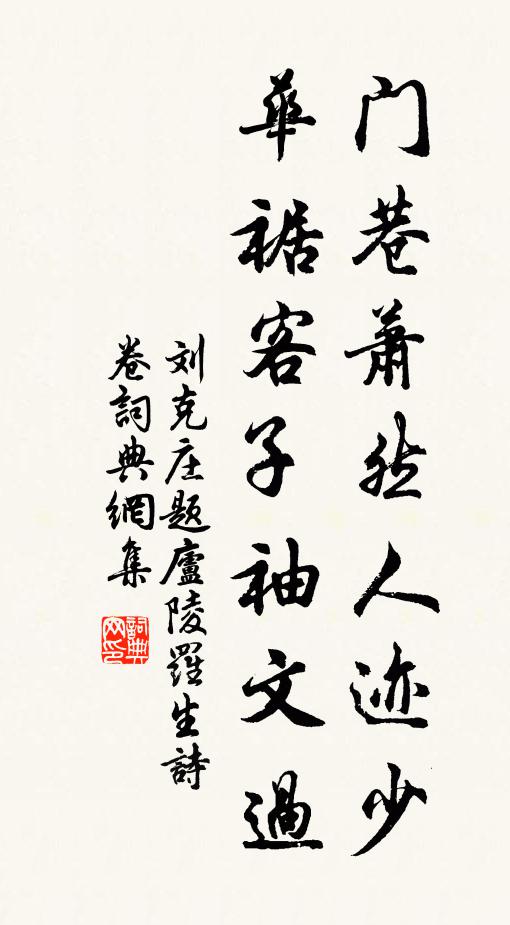 门巷萧然人迹少
華裾客子袖文過
刘克庄题廬陵羅生詩
卷詞典網集
詞典网印